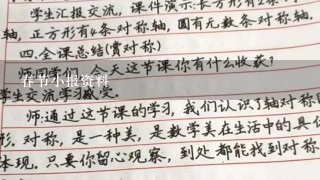 学生汇报交流，课件演示：长方形有2条
轴，正方形有4条对称轴，圆有无数条对称轴.
四.全课总结(赏对称)
师:同学们，今天这节课你有什么收获?
春节小报资料
学生交流学习感受.
师:通过这节课的学习，我们认识了轴对称
形.对称，是一种美，是数学美在生活中的具
体现.只要你留心观察，到处都能找到对称